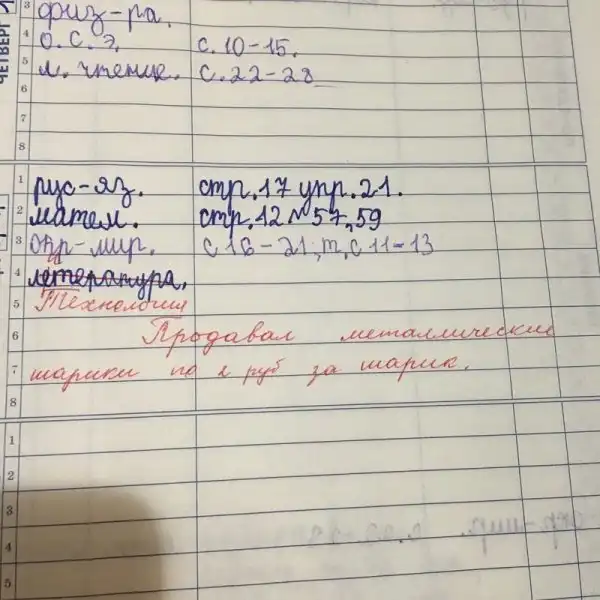 ЧЕТВЕРГ
3 физ-ра.
4 О. С. Э. с. 10-15.
5 л. чтение. с. 22-28
6
7
8
1 рус-яз. стр. 17 упр. 21.
2 матем. стр. 12 № 57, 59
3 окр-мир. с 16-21; т, с 11-13
4 литература.
5 Технология
6 Продавал металлические
7 шарики по 2 руб за шарик.
8
1
2
3
4
5